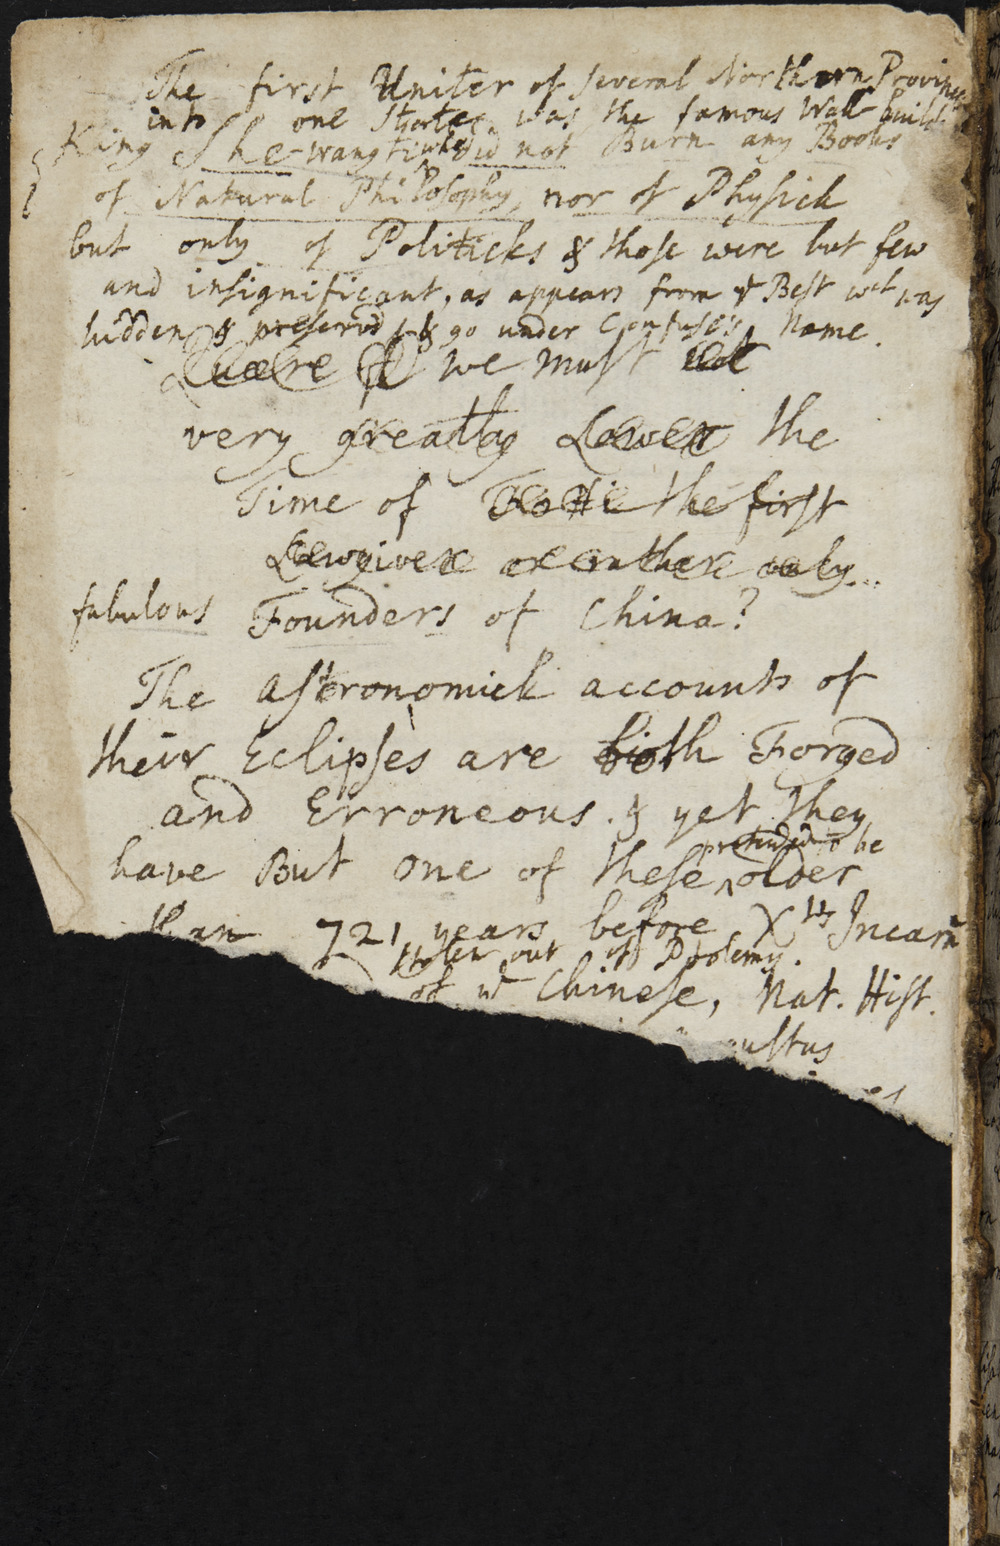 The first Uniter of several Northern Provinces
into one State, was the famous Wall build
King She-wangti who did not Burn any Books
of Natural Philosophy, nor of Physick
but only of Politicks & those were but few
and insignificant, as appears from ye Best wch was
hidden & preserv'd & go under Confuse's Name.
Quære if we must not
very greatly Lower the
Time of the first
Lawgivers or rather only
fabulous Founders of China?
The Astronomick accounts of
their Eclipses are both Forged
and Erroneous. & yet they
have But One of these, pretended to be older
than 721 years before Xts Incarn
stolen out of Ptolemy.
of ye Chinese, Nat. Hist.
ultus